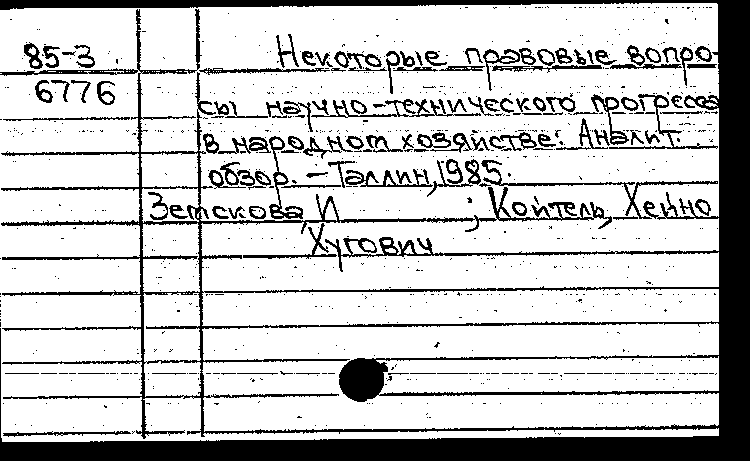 85-3
6776
Некоторые правовые вопро-
сы научно-технического прогресса
в народном хозяйстве: Аналит.
обзор. - Таллин, 1985.
Земскова, И ; Койтель, Хейно
Хугович